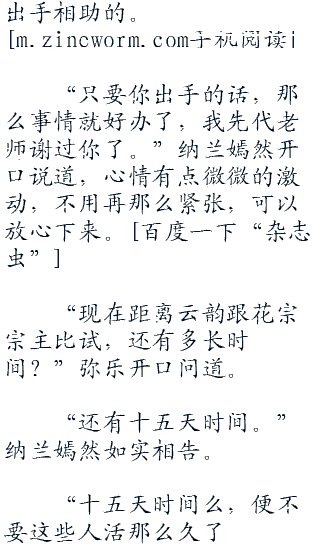 出手相助的。
[m.zincworm.com手机阅读]
“只要你出手的话，那
么事情就好办了，我先代老
师谢过你了。”纳兰嫣然开
口说道，心情有点微微的激
动，不用再那么紧张，可以
放心下来。[百度一下“杂志
虫”]
“现在距离云韵跟花宗
宗主比试，还有多长时
间？”弥乐开口问道。
“还有十五天时间。”
纳兰嫣然如实相告。
“十五天时间么，便不
要这些人活那么久了